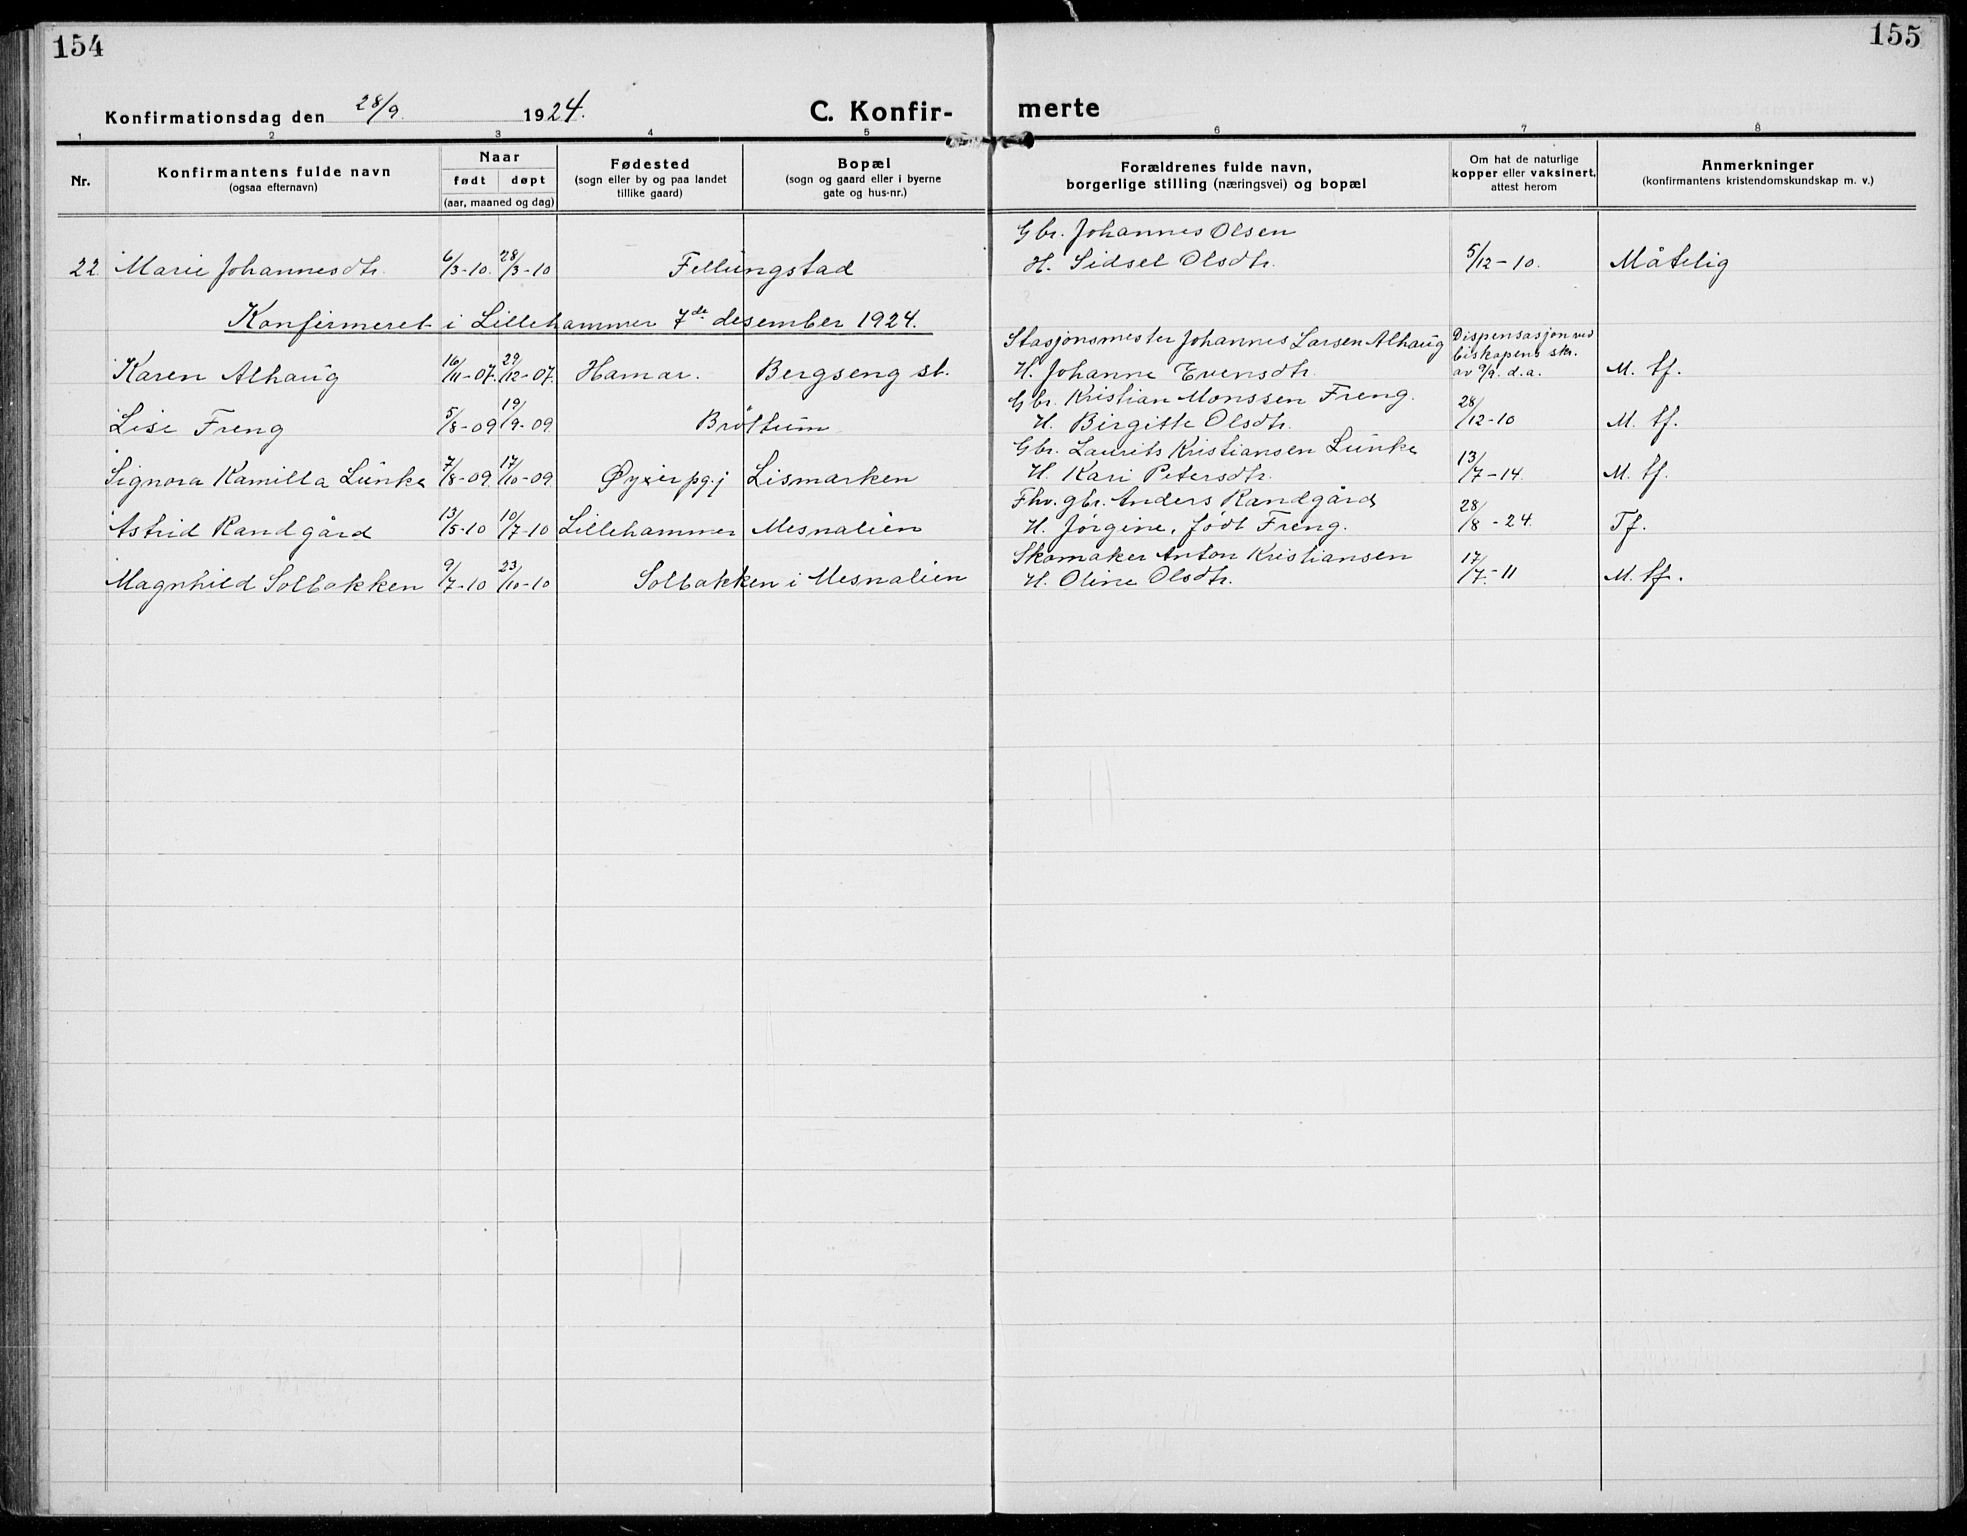 154
155
Konfirmationsdag den 28/9 1924.
C. Konfir-
merte
1 2 3 4 5 6 7 8
Nr.
Konfirmantens fulde navn
(ogsaa efternavn)
Naar
født døpt
(aar, maaned og dag)
Fødested
(sogn eller by og paa landet
tillike gaard)
Bopæl
(sogn og gaard eller i byerne
gate og hus-nr.)
Forældrenes fulde navn,
borgerlige stilling (næringsvei) og bopæl
Om hat de naturlige
kopper eller vaksinert,
attest herom
Anmerkninger
(konfirmantens kristendomskundskap m. v.)
Gbr. Johannes Olsen
22. Marie Johannesdtr. 6/3-10. 28/3-10 Fellungstad H. Sidsel Olsdtr. 5/12-10. Måtelig
Konfirmeret i Lillehammer 7de desember 1924.
Stasjonsmester Johannes Larsen Alhaug Dispensasjon ved
biskapens skr.
Karen Alhaug 16/11-07. 29/12-07. Hamar. Bergseng st. H. Johanne Evensdtr. av 9/9. d.a. M. tf.
Gbr. Kristian Monssen Freng.
Lise Freng 5/8-09 19/9-09. Brøttum H. Birgitte Olsdtr. 28/12-10 M. tf.
Gbr. Laurits Kristiansen Lunke
Signora Kamilla Lunke 7/8-09. 17/10-09. Øyer pgj Lismarken H. Kari Petersdtr. 13/7-14. M. tf.
Fhv. gbr. Anders Randgård
Astrid Randgård 13/5-10 10/7-10 Lillehammer Mesnalien H. Jørgine, født Freng. 28/8-24. Tf.
Skomaker Anton Kristiansen
Magnhild Solbakken 9/7-10 23/10-10 Solbakken i Mesnalien H. Oline Olsdtr. 17/7-11 M. tf.